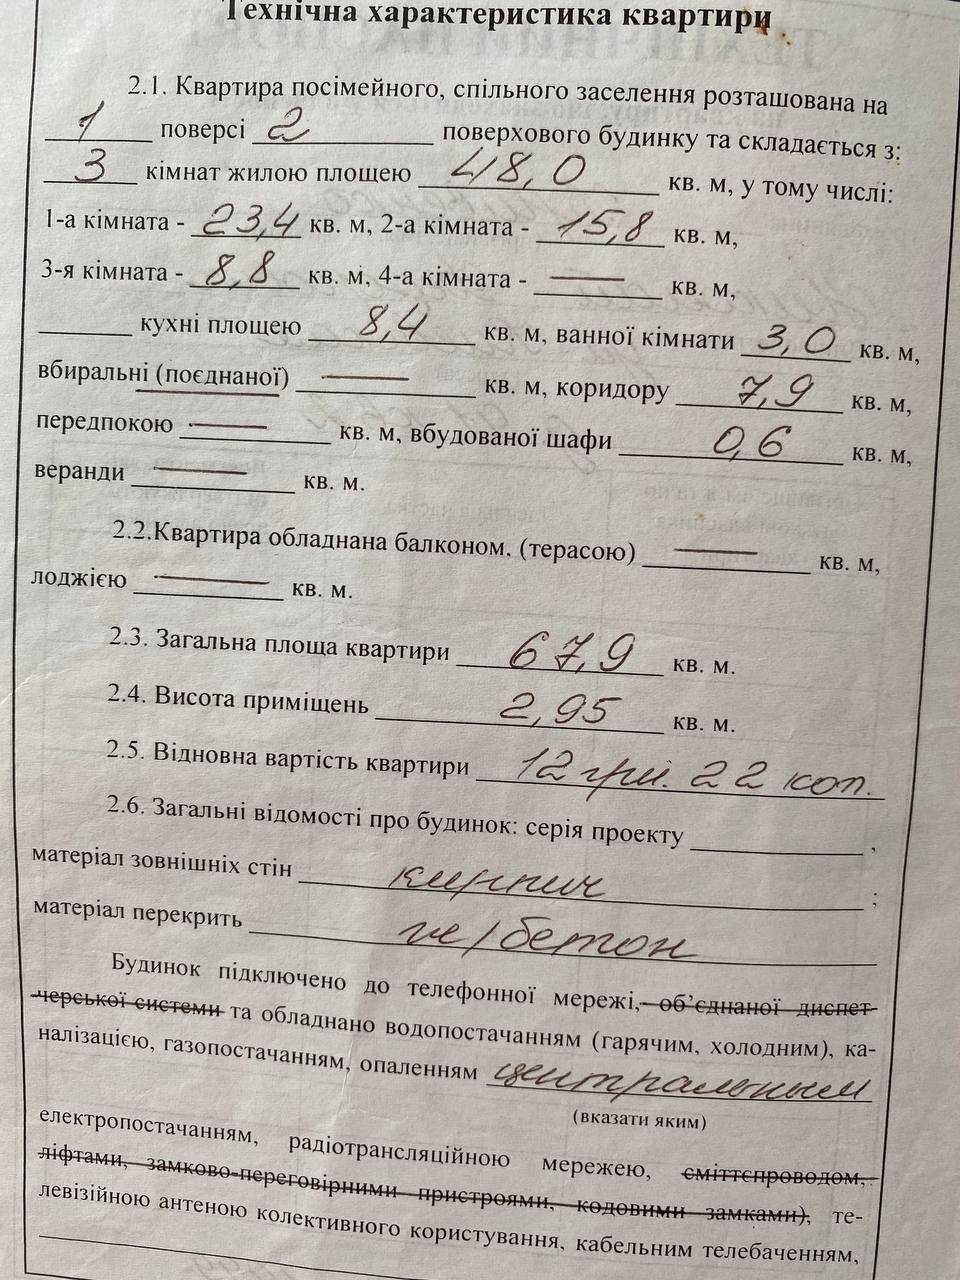 Технічна характеристика квартири
2.1. Квартира посімейного, спільного заселення розташована на
1 поверсі 2 поверхового будинку та складається з:
3 кімнат жилою площею 48,0 кв. м, у тому числі:
1-а кімната - 23,4 кв. м, 2-а кімната - 15,8 кв. м,
3-я кімната - 8,8 кв. м, 4-а кімната - — кв. м,
кухні площею 8,4 кв. м, ванної кімнати 3,0 кв. м,
вбиральні (поєднаної) — кв. м, коридору 7,9 кв. м,
передпокою — кв. м, вбудованої шафи 0,6 кв. м,
веранди — кв. м.
2.2.Квартира обладнана балконом, (терасою) — кв. м,
лоджією — кв. м.
2.3. Загальна площа квартири 67,9 кв. м.
2.4. Висота приміщень 2,95 кв. м.
2.5. Відновна вартість квартири 12 грн. 22 коп.
2.6. Загальні відомості про будинок: серія проекту ,
матеріал зовнішніх стін кирпич ;
матеріал перекрить ж/бетон
Будинок підключено до телефонної мережі, об’єднаної диспет-
черської системи та обладнано водопостачанням (гарячим, холодним), ка-
налізацією, газопостачанням, опаленням центральным
(вказати яким)
електропостачанням, радіотрансляційною мережею, сміттєпроводом,
ліфтами, замково-переговірними пристроями, кодовими замками), те-
левізійною антеною колективного користування, кабельним телебаченням,